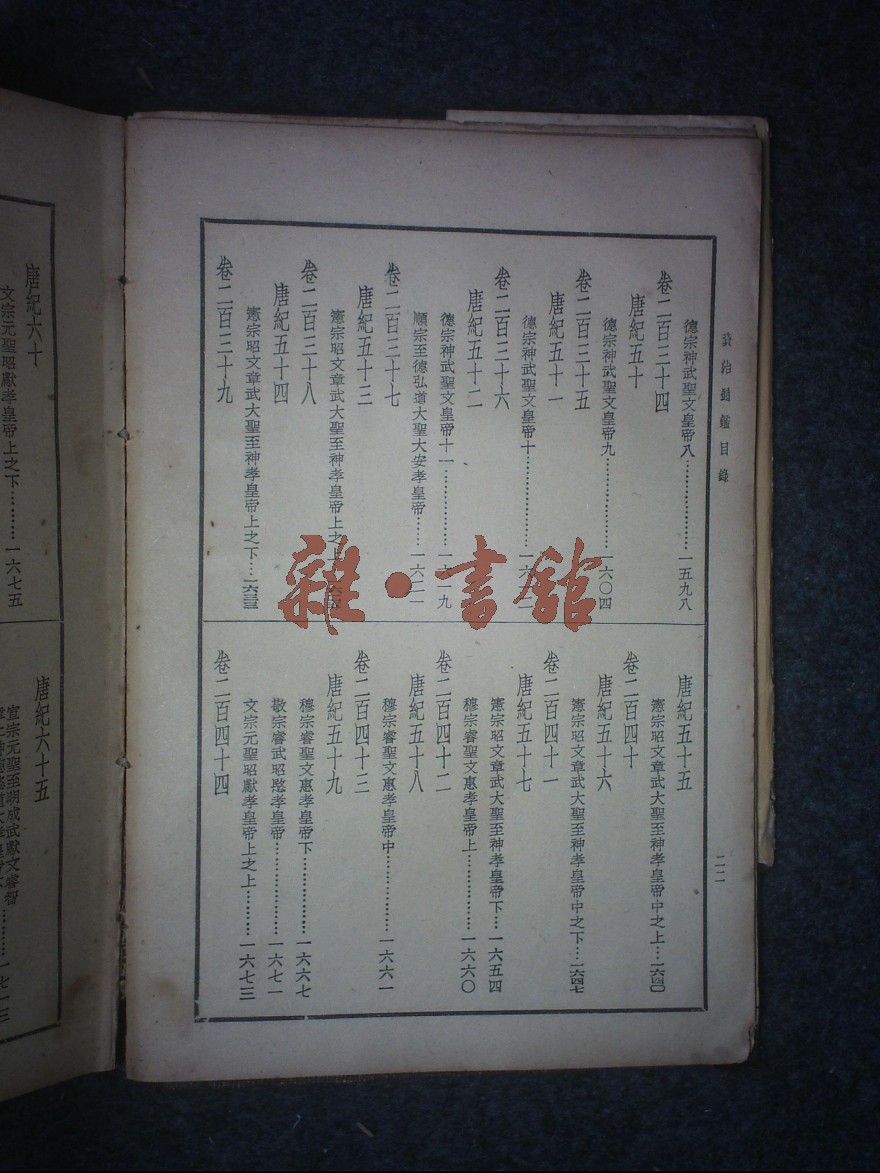 資治通鑑目錄
二二
德宗神武聖文皇帝八………………一五九八
卷二百三十四
唐紀五十
德宗神武聖文皇帝九………………一六〇四
卷二百三十五
唐紀五十一
德宗神武聖文皇帝十………………一六一二
卷二百三十六
唐紀五十二
德宗神武聖文皇帝十一……………一六一九
順宗至德弘道大聖大安孝皇帝……一六二一
卷二百三十七
唐紀五十三
憲宗昭文章武大聖至神孝皇帝上之上
卷二百三十八
唐紀五十四
憲宗昭文章武大聖至神孝皇帝上之下…一六三三
卷二百三十九
唐紀五十五
憲宗昭文章武大聖至神孝皇帝中之上…一六四〇
卷二百四十
唐紀五十六
憲宗昭文章武大聖至神孝皇帝中之下…一六四七
卷二百四十一
唐紀五十七
憲宗昭文章武大聖至神孝皇帝下…一六五四
穆宗睿聖文惠孝皇帝上……………一六六〇
卷二百四十二
唐紀五十八
穆宗睿聖文惠孝皇帝中……………一六六一
卷二百四十三
唐紀五十九
穆宗睿聖文惠孝皇帝下……………一六六七
敬宗睿武昭愍孝皇帝………………一六七一
文宗元聖昭獻孝皇帝上之上………一六七三
卷二百四十四
唐紀六十
文宗元聖昭獻孝皇帝上之下………一六七五
唐紀六十五
宣宗元聖至明成武獻文睿智
………一七一三
雜·書館